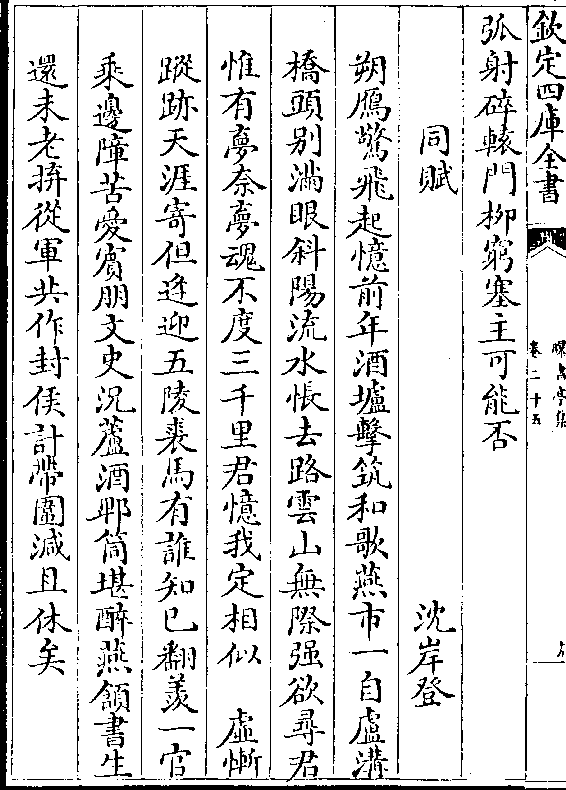 欽定四庫全書
曝書亭集
卷二十五
弧射碎轅門柳窮塞主可能否
同賦 沈岸登
朔鴈驚飛起憶前年酒壚擊筑和歌燕市一自盧溝
橋頭别滿眼斜陽流水悵去路雲山無際强欲尋君
惟有夢奈夢魂不度三千里君憶我定相似 虚慚
蹤跡天涯寄但逢迎五陵裘馬有誰知己翻羡一官
乘邊障苦愛賓朋文史況蘆酒郫筒堪醉燕頷書生
還未老拚從軍共作封侯計帶圍減且休矣